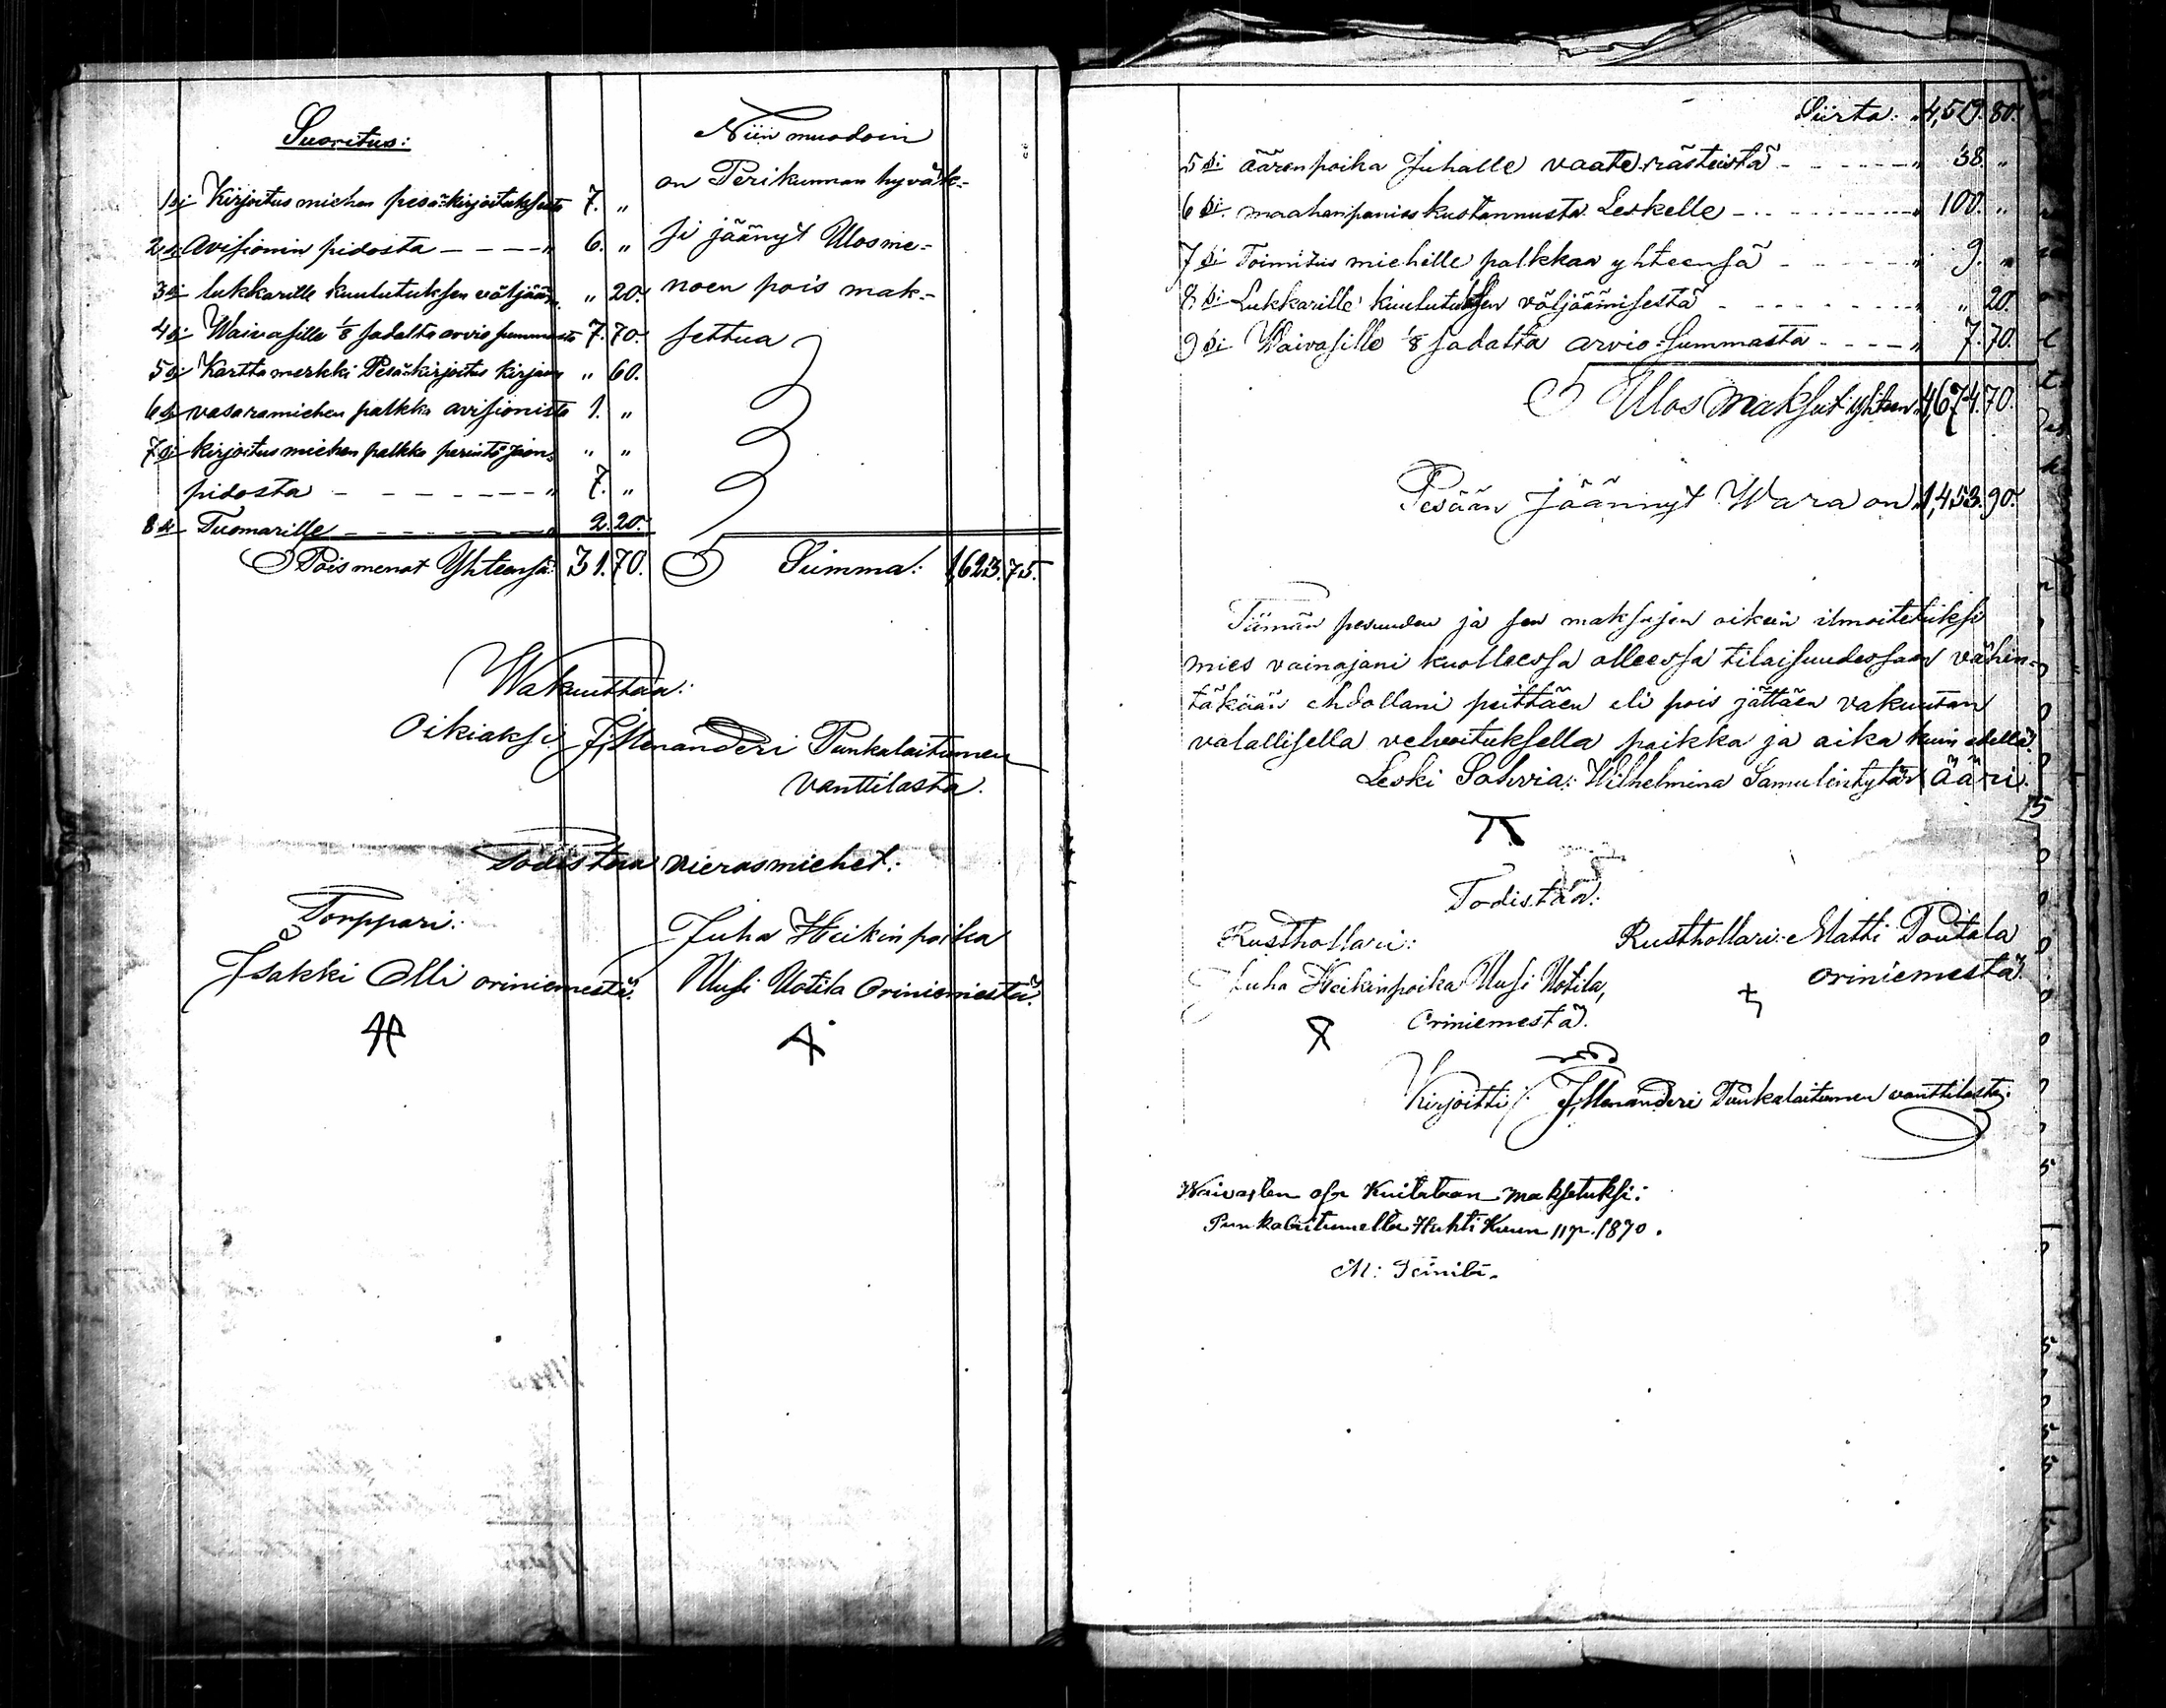 Suoritus:
1si Kirjoitus miehen pesäkirjoituksesta 7. „
2si Avisionin pidosta — — — — „ 6. „
3si lukkarille kuulutuksen väljään. „ 20.
4si Waivasille 1/8 sadalta arvio summasta 7. 70.
5si Kartta merkki Pesäkirjoitus kirjaan „ 60.
6si vasaramiehen palkka avisionista 1. „
7si kirjoitus miehen palkka perintö jaon- „ „
pidosta — — — — — — „ 7. „
8si Tuomarille — — — — — „ 2. 20.
Pois menot Yhteensä: 31. 70.
Niin muodoin
on Perikunnan hyväk-
si jäänyt Ulosme-
noen pois mak-
settua
Summa: 1,623. 75.
Wakuuttaa:
Oikiaksi J. Menanderi Punkalaitumen
Vanttilasta.
Todistaa vierasmiehet:
Torppari:
Isakki Olli oriniemestä.
Juha Heikinpoika
Uusi Uotila Oriniemestä.
Siirta: 4,519. 80.
5si äärenpoika Juhalle vaate rästeistä - - - - - „ 38. „
6si maahanpanias kustannusta Leskelle - - - - - „ 100. „
7si Toimitus miehille palkkaa yhteensä - - - - - „ 9. „
8si Lukkarille kuulutuksen väljäämisestä - - - - - „ 20.
9si Waivasille 1/8 sadalta arvio-Summasta - - - - „ 7. 70.
Ulos maksut yhteen 4,674. 70.
Pesään Jäännyt Wara on 1,453. 90.
Tämän pesuuden ja sen maksujen oikein ilmoitetuksi
mies vainajani kuolleessa olleessa tilaisuudessaan vähin-
täkään ehdollani peittäen eli pois jättäen vakuutan
valallisella velvoituksella paikka ja aika kuin edellä.
Leski Sohvia: Wilhelmina Samulintytär Ääri.
Todistaa:
Rusthollari:
Juha Heikinpoika Uusi Uotila,
Oriniemestä.
Rusthollari: Matti Poutala
oriniemestä.
Kirjoitti: J. Menanderi Punkalaitumen vanttilasta.
Waivasten osa Kuitataan maksetuksi:
Punkalaitumella Huhti Kuun 11p. 1870.